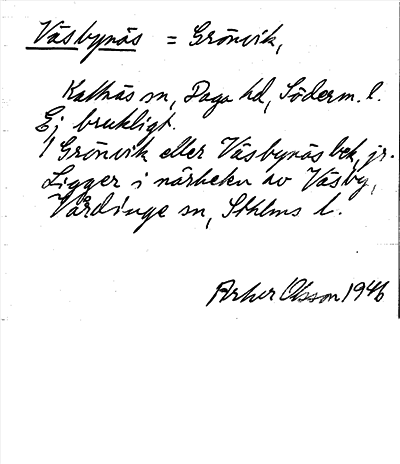 Väsbynäs = Grönvik,
Kattnäs sn, Daga hd, Söderm. l.
Ej brukligt.
1 Grönvik eller Väsbynäs bek, jr.
Ligger i närheten av Väsby,
Vårdinge sn, Sthlms l.
Arher Olsson 1946